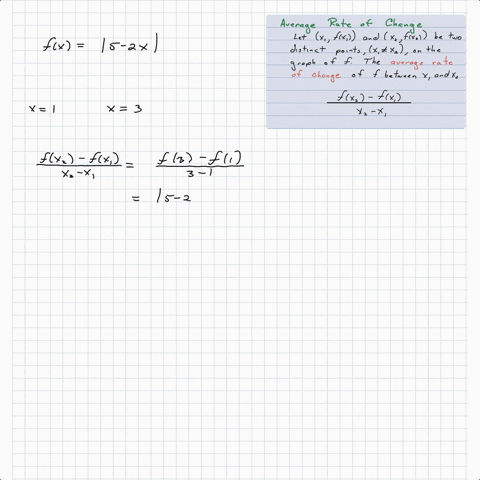 f(x) = |5-2x|
x=1 x=3
f(x₂) - f(x₁) / x₂-x₁ = f(3) - f(1) / 3-1
= |5-2
Average Rate of Change
Let (x₁, f(x₁)) and (x₂, f(x₂)) be two
distinct points, (x₁≠x₂), on the
graph of f. The average rate
of change of f between x₁ and x₂
f(x₂) - f(x₁) / x₂-x₁